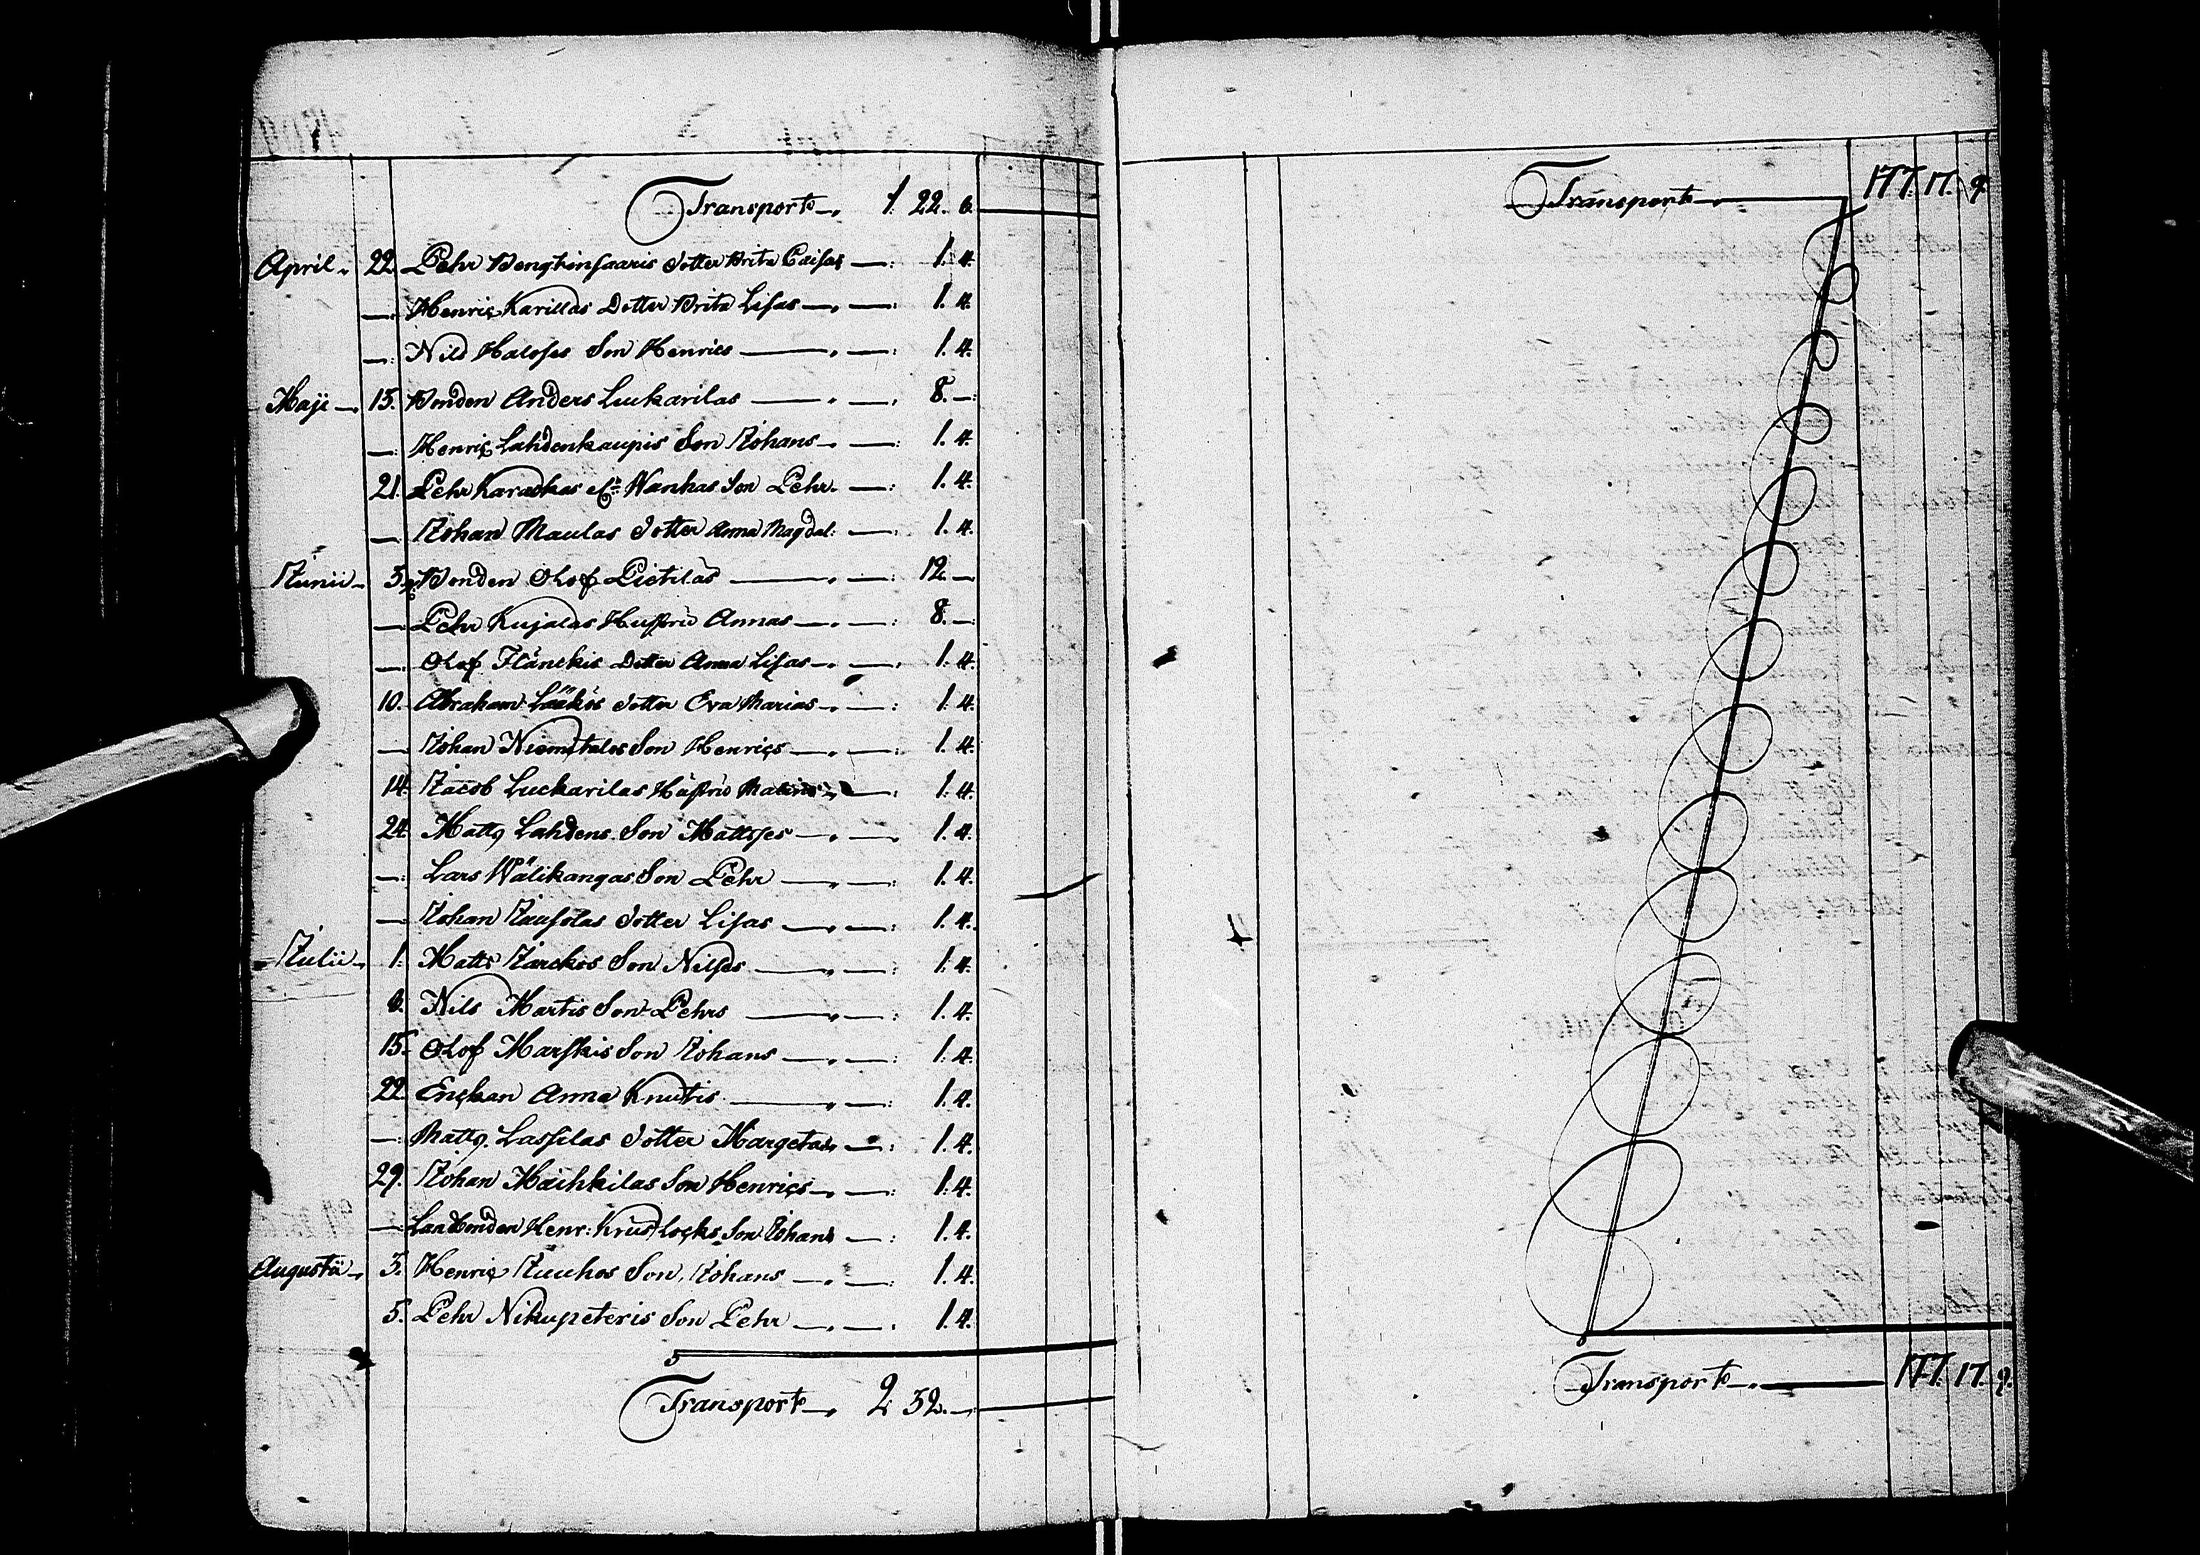 Transport 1 22. 6.
April 22. Pehr Bengtinsaaris Dotter Brita Caisas 1. 4.
Henric Karillas Dotter Brita Lisas 1. 4.
Nils Haloses Son Henrics 1. 4.
Maji 13. Bonden Anders Luckarilas 8. —
Henric Lahdenkaupis Son Johans 1. 4.
21. Pehr Karadkas Wanhas Son Pehr 1. 4.
Johan Maulas Dotter Anna Magdal: 1. 4.
Junii 3. Bonden Olof Pietilas 12. —
Pehr Kujalas Hustru Annas 8. —
Olof Flänckis Dotter Anna Lisas 1. 4.
10. Abraham Dotter Eva Marias 1. 4.
Johan Niemitalos Son Henrics 1. 4.
14. Jacob Luckarilas Hustru 1. 4.
24. Matts Lahdens Son Mattsses 1. 4.
Lars Wälikangas Son Pehr 1. 4.
Johan Jausolas Dotter Lisas 1. 4.
Julii 1. Matts Jarckos Son Nilses 1. 4.
8. Nils Martis Son Pehrs 1. 4.
15. Olof Marskis Son Johans 1. 4.
22. Enckan Anna Knutis 1. 4.
Matts Lassilas Dotter Margetas 1. 4.
29. Johan Maihkilas Son Henrics 1. 4.
Henr: Son Johans 1. 4.
Augusti 3. Henric Juuchos Son Johans 1. 4.
5. Pehr Nikupeteris Son Pehr 1. 4.
Transport 2 32. —
Transport 177. 17. 9.
Transport 177. 17. 9.